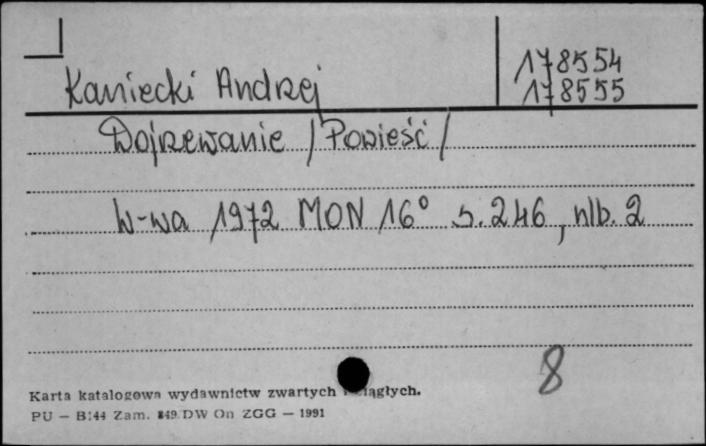 178554
Kaniecki Andrzej 178555
Dojrzewanie /Powieść/
W-wa 1972 MON 16° s. 246, nlb. 2
8
Karta katalogowa wydawnictw zwartych ciągłych.
PU — B:44 Zam. 849 DW Op ZGG — 1991